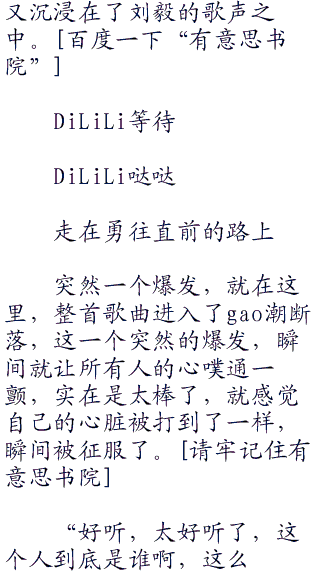 又沉浸在了刘毅的歌声之
中。[百度一下“有意思书
院”]
DiLiLi等待
DiLiLi哒哒
走在勇往直前的路上
突然一个爆发，就在这
里，整首歌曲进入了gao潮断
落，这一个突然的爆发，瞬
间就让所有人的心噗通一
颤，实在是太棒了，就感觉
自己的心脏被打到了一样，
瞬间被征服了。[请牢记住有
意思书院]
“好听，太好听了，这
个人到底是谁啊，这么